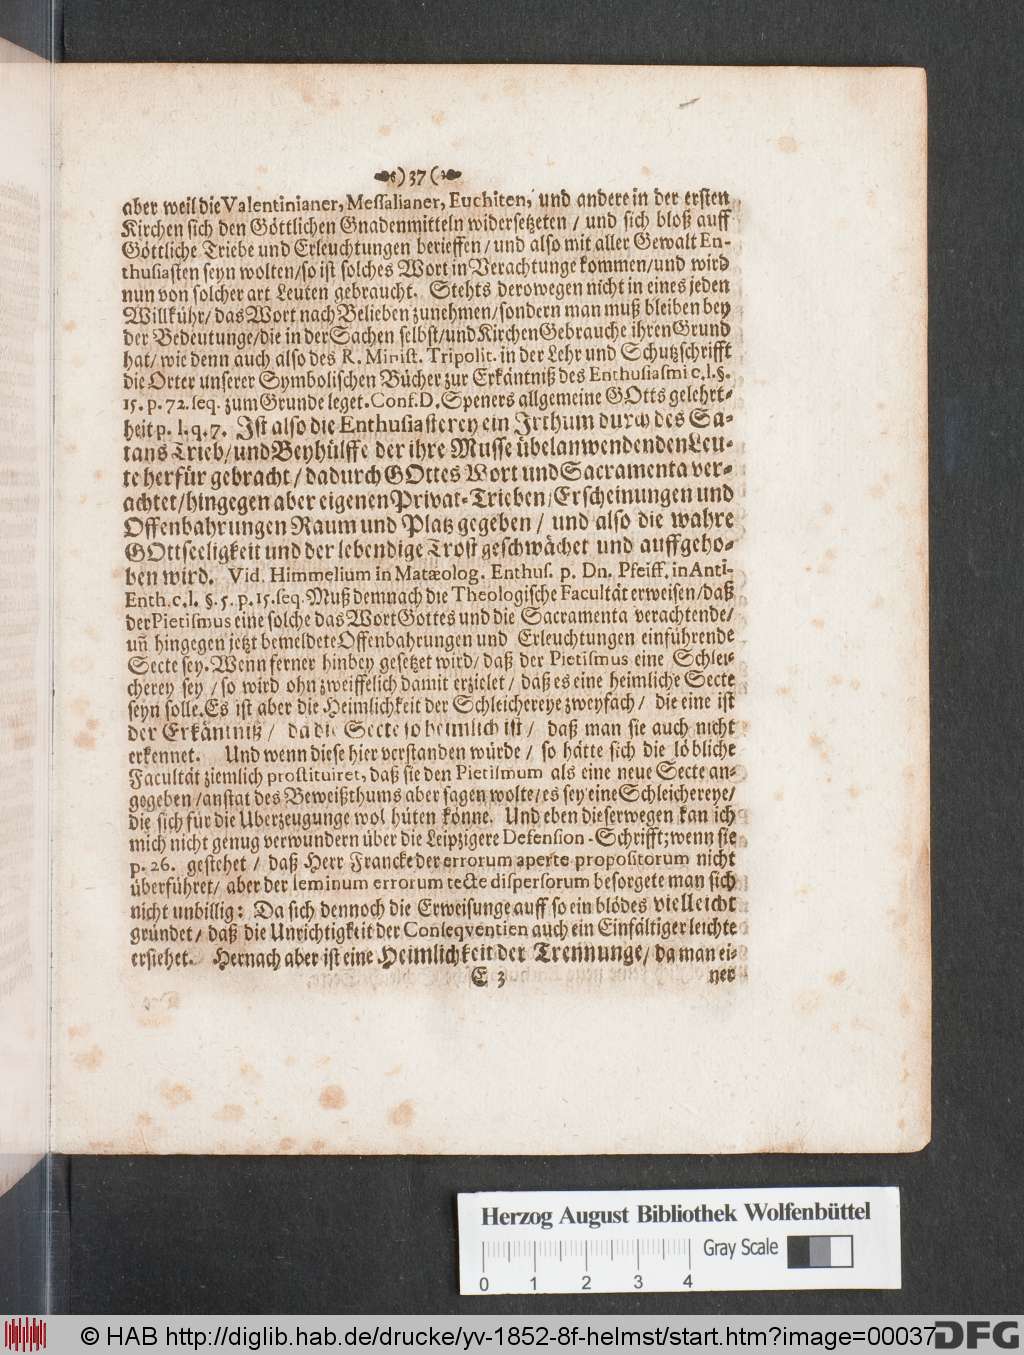 )37(
aber weil die Valentinianer, Messalianer, Euchiten, und andere in der ersten
Kirchen sich den Göttlichen Gnadenmitteln widersetzeten / und sich bloß auff
Göttliche Triebe und Erleuchtungen berieffen / und also mit aller Gewalt En-
thusiasten seyn wolten / so ist solches Wort in Verachtunge kommen / und wird
nun von solcher art Leuten gebraucht. Stehts derowegen nicht in eines jeden
Willkühr / das Wort nach Belieben zunehmen / sondern man muß bleiben bey
der Bedeutunge / die in der Sachen selbst / und Kirchen Gebrauche ihren Grund
hat / wie denn auch also des R. Minist. Tripolit. in der Lehr und Schutzschrifft
die Orter unserer Symbolischen Bücher zur Erkäntniß des Enthusiasmi c. l. §.
15. p. 72. seq. zum Grunde leget. Conf. D. Speners allgemeine GOtts gelehrt-
heit p. l. q. 7. Ist also die Enthusiasterey ein Irthum durch des Sa-
tans Trieb / und Beyhülffe der ihre Musse übelanwendenden Leu-
te herfür gebracht / dadurch GOttes Wort und Sacramenta ver-
achtet / hingegen aber eigenen Privat-Trieben / Erscheinungen und
Offenbahrungen Raum und Platz gegeben / und also die wahre
GOttseeligkeit und der lebendige Trost geschwächet und auffgeho-
ben wird. Vid. Himmelium in Matæolog. Enthus. p. Dn. Pfeiff. in Anti-
Enth. c. l. §. 5. p. 15. seq. Muß demnach die Theologische Facultät erweisen / daß
der Pietismus eine solche das Wort Gottes und die Sacramenta verachtende /
uñ hingegen jetzt bemeldete Offenbahrungen und Erleuchtungen einführende
Secte sey. Wenn ferner hinbey gesetzet wird / daß der Pietismus eine Schlei-
cherey sey / so wird ohn zweiffelich damit erzielet / daß es eine heimliche Secte
seyn solle. Es ist aber die Heimlichkeit der Schleichereye zweyfach / die eine ist
der Erkäntniß / da die Secte so heimlich ist / daß man sie auch nicht
erkennet. Und wenn diese hier verstanden würde / so hätte sich die löbliche
Facultät ziemlich prostituiret, daß sie den Pietismum als eine neue Secte an-
gegeben / anstat des Beweißthums aber sagen wolte / es sey eine Schleichereye /
die sich für die Uberzeugunge wol hüten könne. Und eben dieserwegen kan ich
mich nicht genug verwundern über die Leipzigere Defension-Schrifft; wenn sie
p. 26. gestehet / daß Herr Francke der errorum aperte propositorum nicht
überführet / aber der seminum errorum tecte dispersorum besorgete man sich
nicht unbillig: Da sich dennoch die Erweisunge auff so ein blödes vielleicht
gründet / daß die Unrichtigkeit der Conseqventien auch ein Einfältiger leichte
ersiehet. Hernach aber ist eine Heimlichkeit der Trennunge / da man ei-
E 3
ner
Herzog August Bibliothek Wolfenbüttel
Gray Scale
0 1 2 3 4
© HAB http://diglib.hab.de/drucke/yv-1852-8f-helmst/start.htm?image=00037
DFG